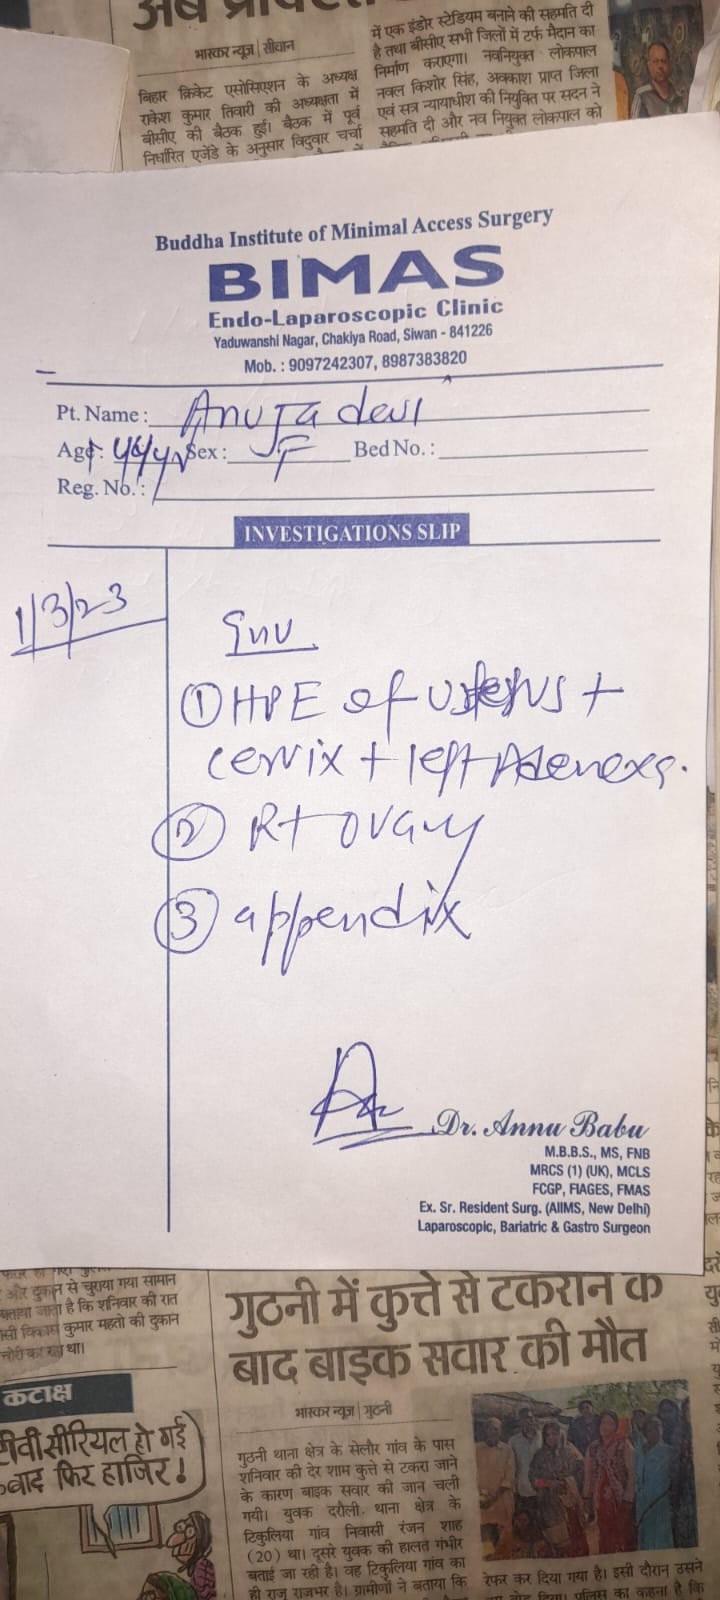 अब प्रा
भास्कर न्यूज | सीवान
बिहार क्रिकेट एसोसिएशन के अध्यक्ष
राकेश कुमार तिवारी की अध्यक्षता में
बीसीए की बैठक हुई। बैठक में पूर्व
निर्धारित एजेंडे के अनुसार विदुवार चर्चा
में एक इंडोर स्टेडियम बनाने की सहमति दी
है तथा बीसीए सभी जिलों में टर्फ मैदान का
निर्माण कराएगा। नवनियुक्त लोकपाल
नवल किशोर सिंह, अवकाश प्राप्त जिला
एवं सत्र न्यायाधीश की नियुक्ति पर सदन ने
सहमति दी और नव नियुक्त लोकपाल को
Buddha Institute of Minimal Access Surgery
BIMAS
Endo-Laparoscopic Clinic
Yaduwanshi Nagar, Chakiya Road, Siwan - 841226
Mob. : 9097242307, 8987383820
Pt. Name : Anuja devi
Age : 44yr Sex : F Bed No. :
Reg. No. :
INVESTIGATIONS SLIP
1/3/23
Inv
① HPE of uterus +
cervix + left Adenexa.
② Rt ovary
③ appendix
Dr. Annu Babu
M.B.B.S., MS, FNB
MRCS (1) (UK), MCLS
FCGP, FIAGES, FMAS
Ex. Sr. Resident Surg. (AIIMS, New Delhi)
Laparoscopic, Bariatric & Gastro Surgeon
और दुकान से चुराया गया सामान
बताया जाता है कि शनिवार की रात
कुमार महतो की दुकान
था।
कटाक्ष
टीवी सीरियल हो गई
बाद फिर हाजिर!
गुठनी में कुत्ते से टकराने के
बाद बाइक सवार की मौत
भास्कर न्यूज | गुठनी
गुठनी थाना क्षेत्र के सेलौर गांव के पास
शनिवार की देर शाम कुत्ते से टकरा जाने
के कारण बाइक सवार की जान चली
गयी। युवक दरौली थाना क्षेत्र के
टिकुलिया गांव निवासी रंजन शाह
(20) था। दूसरे युवक की हालत गंभीर
बताई जा रही है। वह टिकुलिया गांव का
ही राजू राजभर है। ग्रामीणों ने बताया कि
रेफर कर दिया गया है। इसी दौरान उसने
पुलिस का कहना है कि